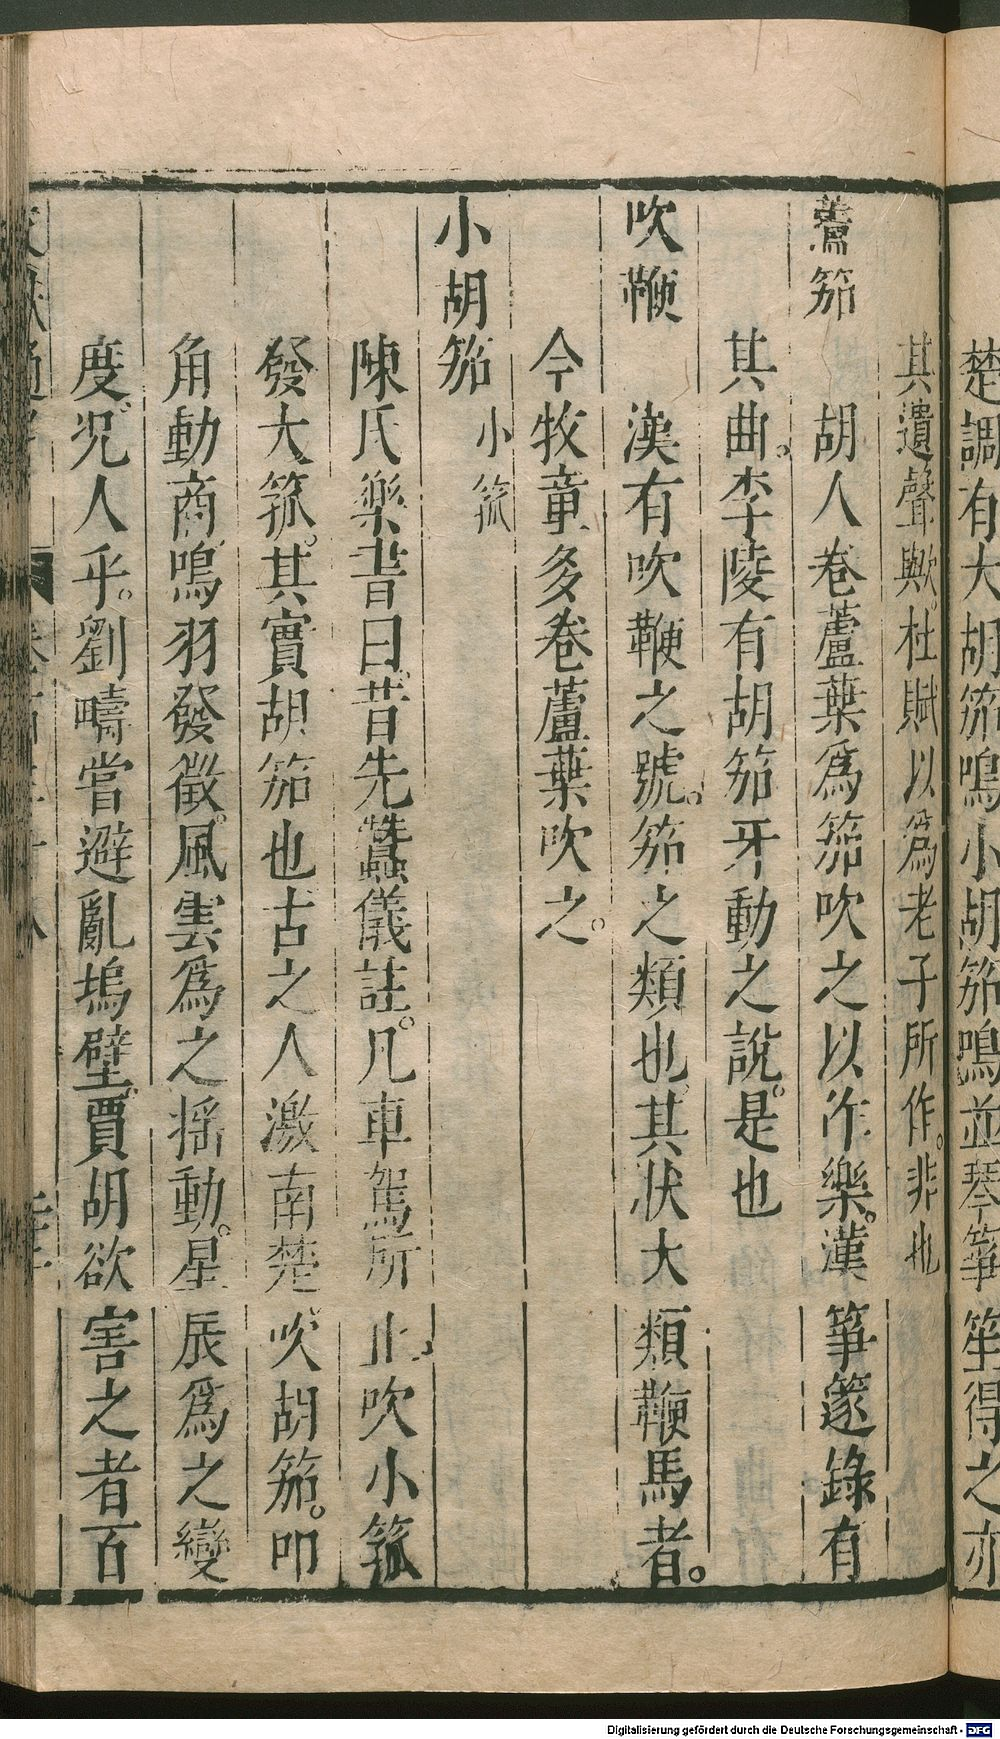 楚調有大胡笳鳴小胡笳鳴並琴箏笙得之亦
其遺聲歟杜䞇以爲老子所作非也
蘆笳
胡人卷蘆葉爲笳吹之以作樂漢箏篴錄有
其曲李陵有胡笳牙動之說是也
吹鞭
漢有吹鞭之號笳之類也其狀大類鞭馬者
今牧童多卷蘆葉吹之
小胡笳 小箛
陳氏樂書曰昔先蠶儀註凡車駕所止吹小箛
發大箛其實胡笳也古之人激南楚吹胡笳叩
角動商鳴羽發徵風雲爲之搖動星辰爲之變
度況人乎劉疇嘗避亂塢壁賈胡欲害之者百
Digitalisierung gefördert durch die Deutsche Forschungsgemeinschaft - DFG